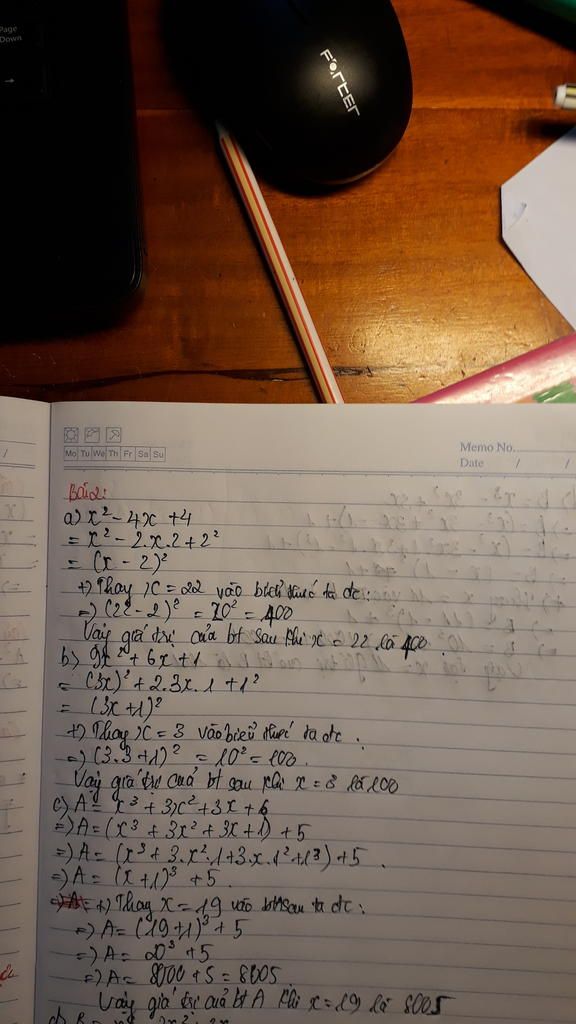 Page
Down
→
Forter
Memo No.
Mo Tu We Th Fr Sa Su
Date / /
Bài 2:
a) x² - 4x + 4
= x² - 2.x.2 + 2²
= (x - 2)²
+) Thay x = 22 vào biểu thức ta đc:
=) (22 - 2)² = 20² = 400
Vậy giá trị của bt sau khi x = 22 là 400.
b) 9x² + 6x + 1
= (3x)² + 2.3x.1 + 1²
= (3x + 1)²
+) Thay x = 3 vào biểu thức ta đc:
=) (3.3 + 1)² = 10² = 100.
Vậy giá trị của bt sau khi x = 3 là 100
c) A = x³ + 3x² + 3x + 6
=) A = (x³ + 3x² + 3x + 1) + 5
=) A = (x³ + 3.x².1 + 3.x.1² + 1³) + 5.
=) A = (x + 1)³ + 5.
+) Thay x = 19 vào bt sau ta đc:
=) A = (19 + 1)³ + 5
=) A = 20³ + 5
=) A = 8000 + 5 = 8005
Vậy giá trị của bt A khi x = 19 là 8005